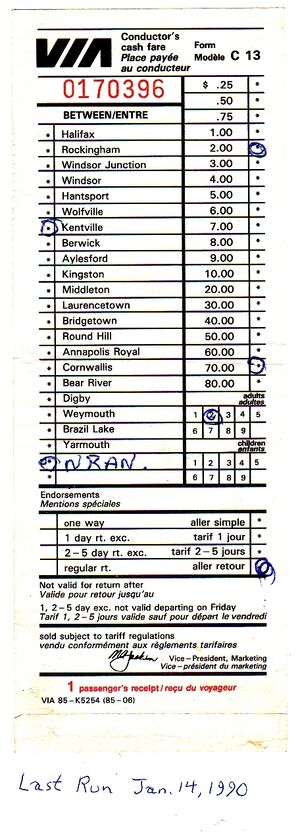 VIA
Conductor's
cash fare
Place payée
au conducteur
Form
Modèle C 13
0170396
$ .25 *
.50 *
BETWEEN/ENTRE .75 *
* Halifax 1.00 *
* Rockingham 2.00 *
* Windsor Junction 3.00 *
* Windsor 4.00 *
* Hantsport 5.00 *
* Wolfville 6.00 *
* Kentville 7.00 *
* Berwick 8.00 *
* Aylesford 9.00 *
* Kingston 10.00 *
* Middleton 20.00 *
* Laurencetown 30.00 *
* Bridgetown 40.00 *
* Round Hill 50.00 *
* Annapolis Royal 60.00 *
* Cornwallis 70.00 *
* Bear River 80.00 *
* Digby adults
adultes
* Weymouth 1 2 3 4 5
* Brazil Lake 6 7 8 9
* Yarmouth children
enfants
* NRAN. 1 2 3 4 5
* 6 7 8 9
Endorsements
Mentions spéciales
one way aller simple *
1 day rt. exc. tarif 1 jour *
2-5 day rt. exc. tarif 2-5 jours *
regular rt. aller retour *
Not valid for return after
Valide pour retour jusqu'au
1, 2-5 day exc. not valid departing on Friday
Tarif 1, 2-5 jours valide sauf pour départ le vendredi
sold subject to tariff regulations
vendu conformément aux règlements tarifaires
Vice-President, Marketing
Vice-président du marketing
1 passenger's receipt/reçu du voyageur
VIA 85-K5254 (85-06)
Last Run Jan. 14, 1990